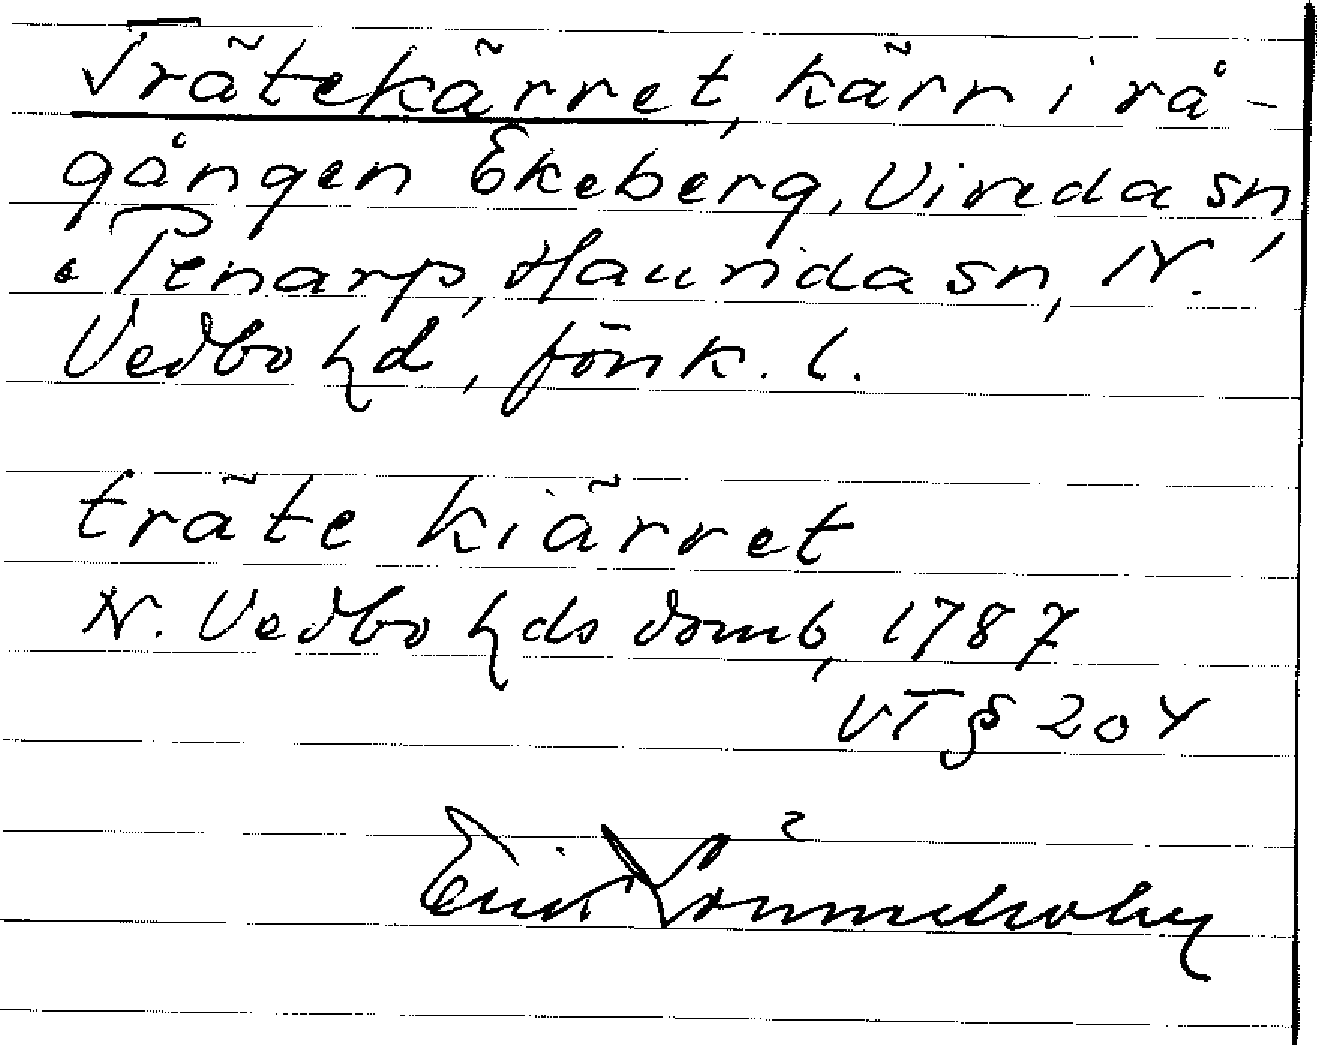 Trätekärret, kärr i rå-
gången Ekeberg, Vireda sn,
Tenarp, Haurida sn, N.
Vedbo hd, Jönk. l.
träte kiärret
N. Vedbo hds domb, 1787
VT § 204
Erik